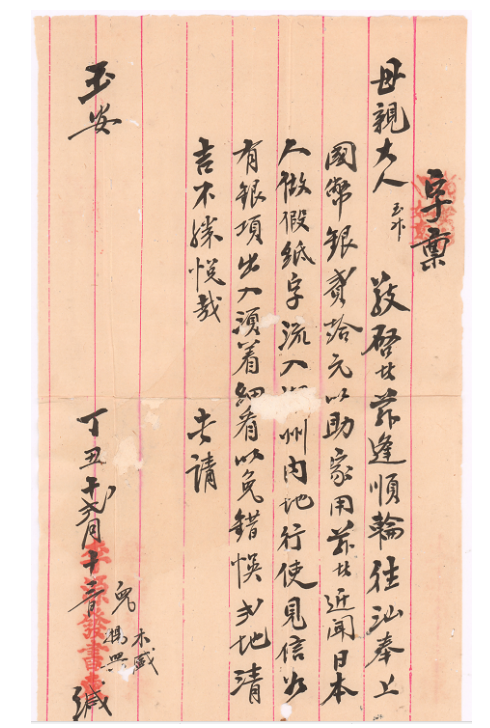 字稟
母親大人 玉下 敬啓者茲逢順輪往汕奉上
國幣銀貳拾元以助家用茲者近聞日本
人做假紙字流入州內地行使見信如
有銀項出入須着細看以免錯悞平地清
吉不勝悅哉 此請
玉安
丁丑年月十二日 兒 木盛 楊興 緘